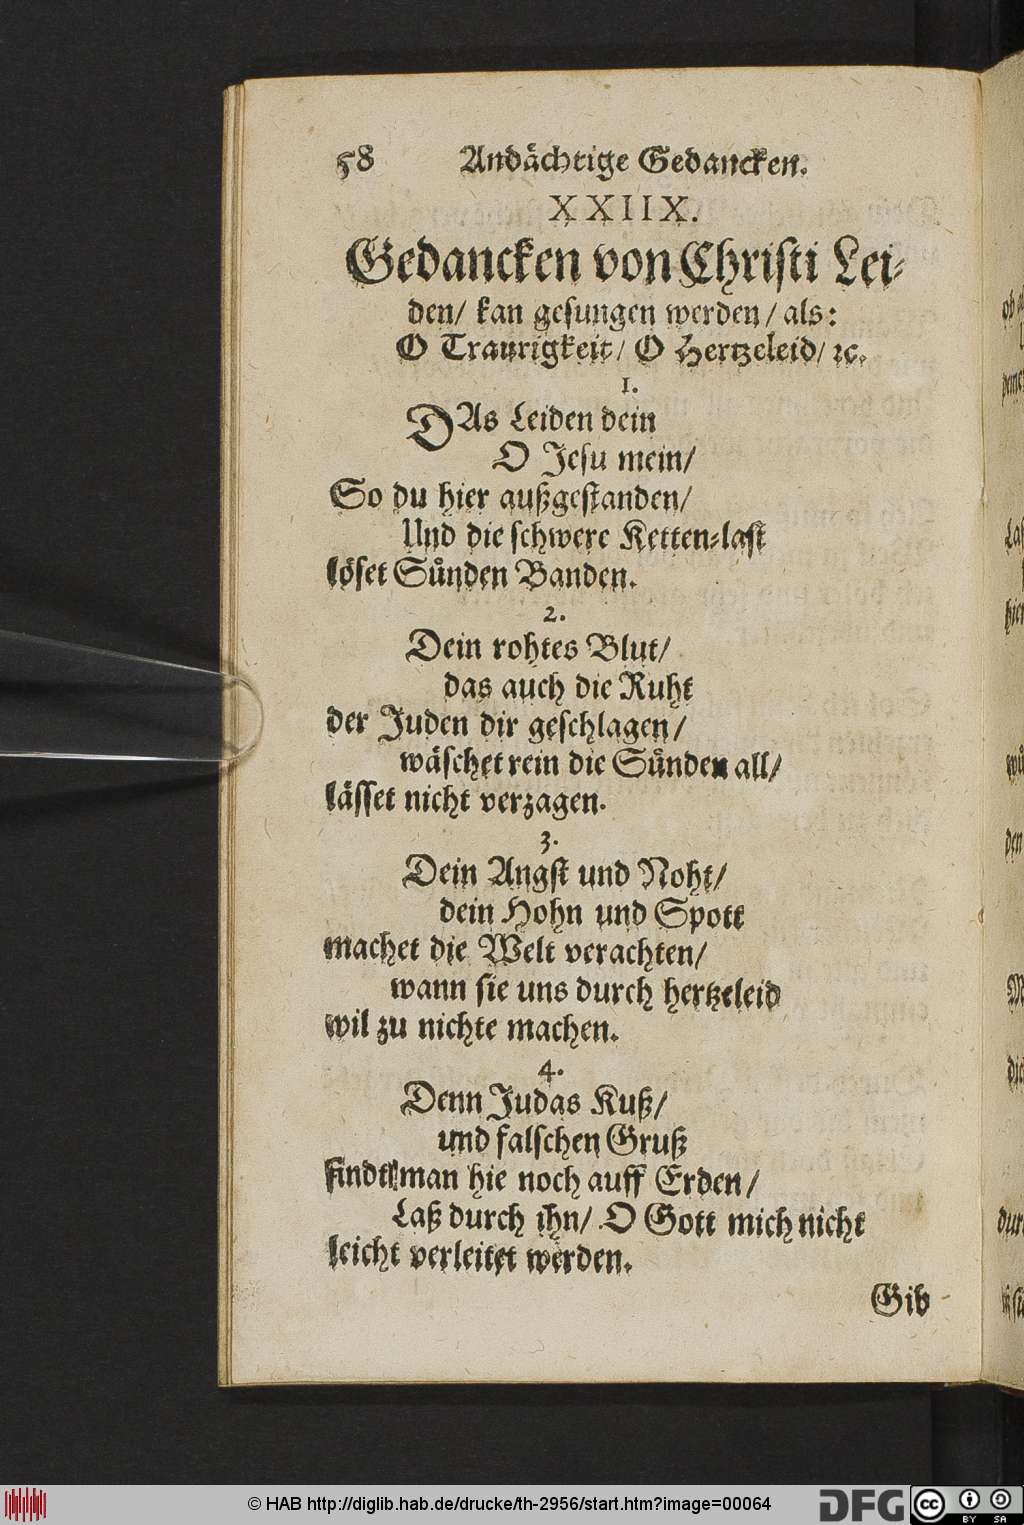 58 Andächtige Gedancken.
XXIIX.
Gedancken von Christi Lei-
den/ kan gesungen werden/ als:
O Traurigkeit/ O Hertzeleid/ ꝛc.
1.
DAs Leiden dein
O Jesu mein/
So du hier außgestanden/
Und die schwere Ketten-last
löset Sünden Banden.
2.
Dein rohtes Blut/
das auch die Ruht
der Juden dir geschlagen/
wäschet rein die Sünden all/
lässet nicht verzagen.
3.
Dein Angst und Noht/
dein Hohn und Spott
machet die Welt verachten/
wann sie uns durch hertzeleid
wil zu nichte machen.
4.
Denn Judas Kuß/
und falschen Gruß
findt man hie noch auff Erden/
Laß durch ihn/ O Gott mich nicht
leicht verleitet werden.
Gib
© HAB http://diglib.hab.de/drucke/th-2956/start.htm?image=00064
DFG
cc BY SA